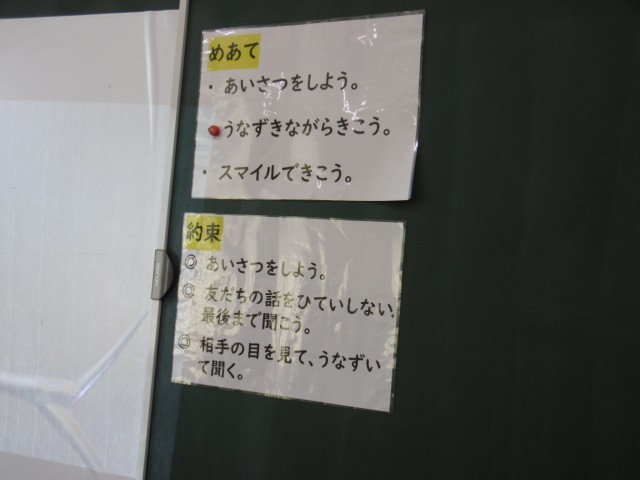 めあて
・あいさつをしよう。
うなずきながらきこう。
・スマイルできこう。
約束
◎ あいさつをしよう。
◎ 友だちの話をひていしない。
最後まで聞こう。
◎ 相手の目を見て、うなずい
て聞く。